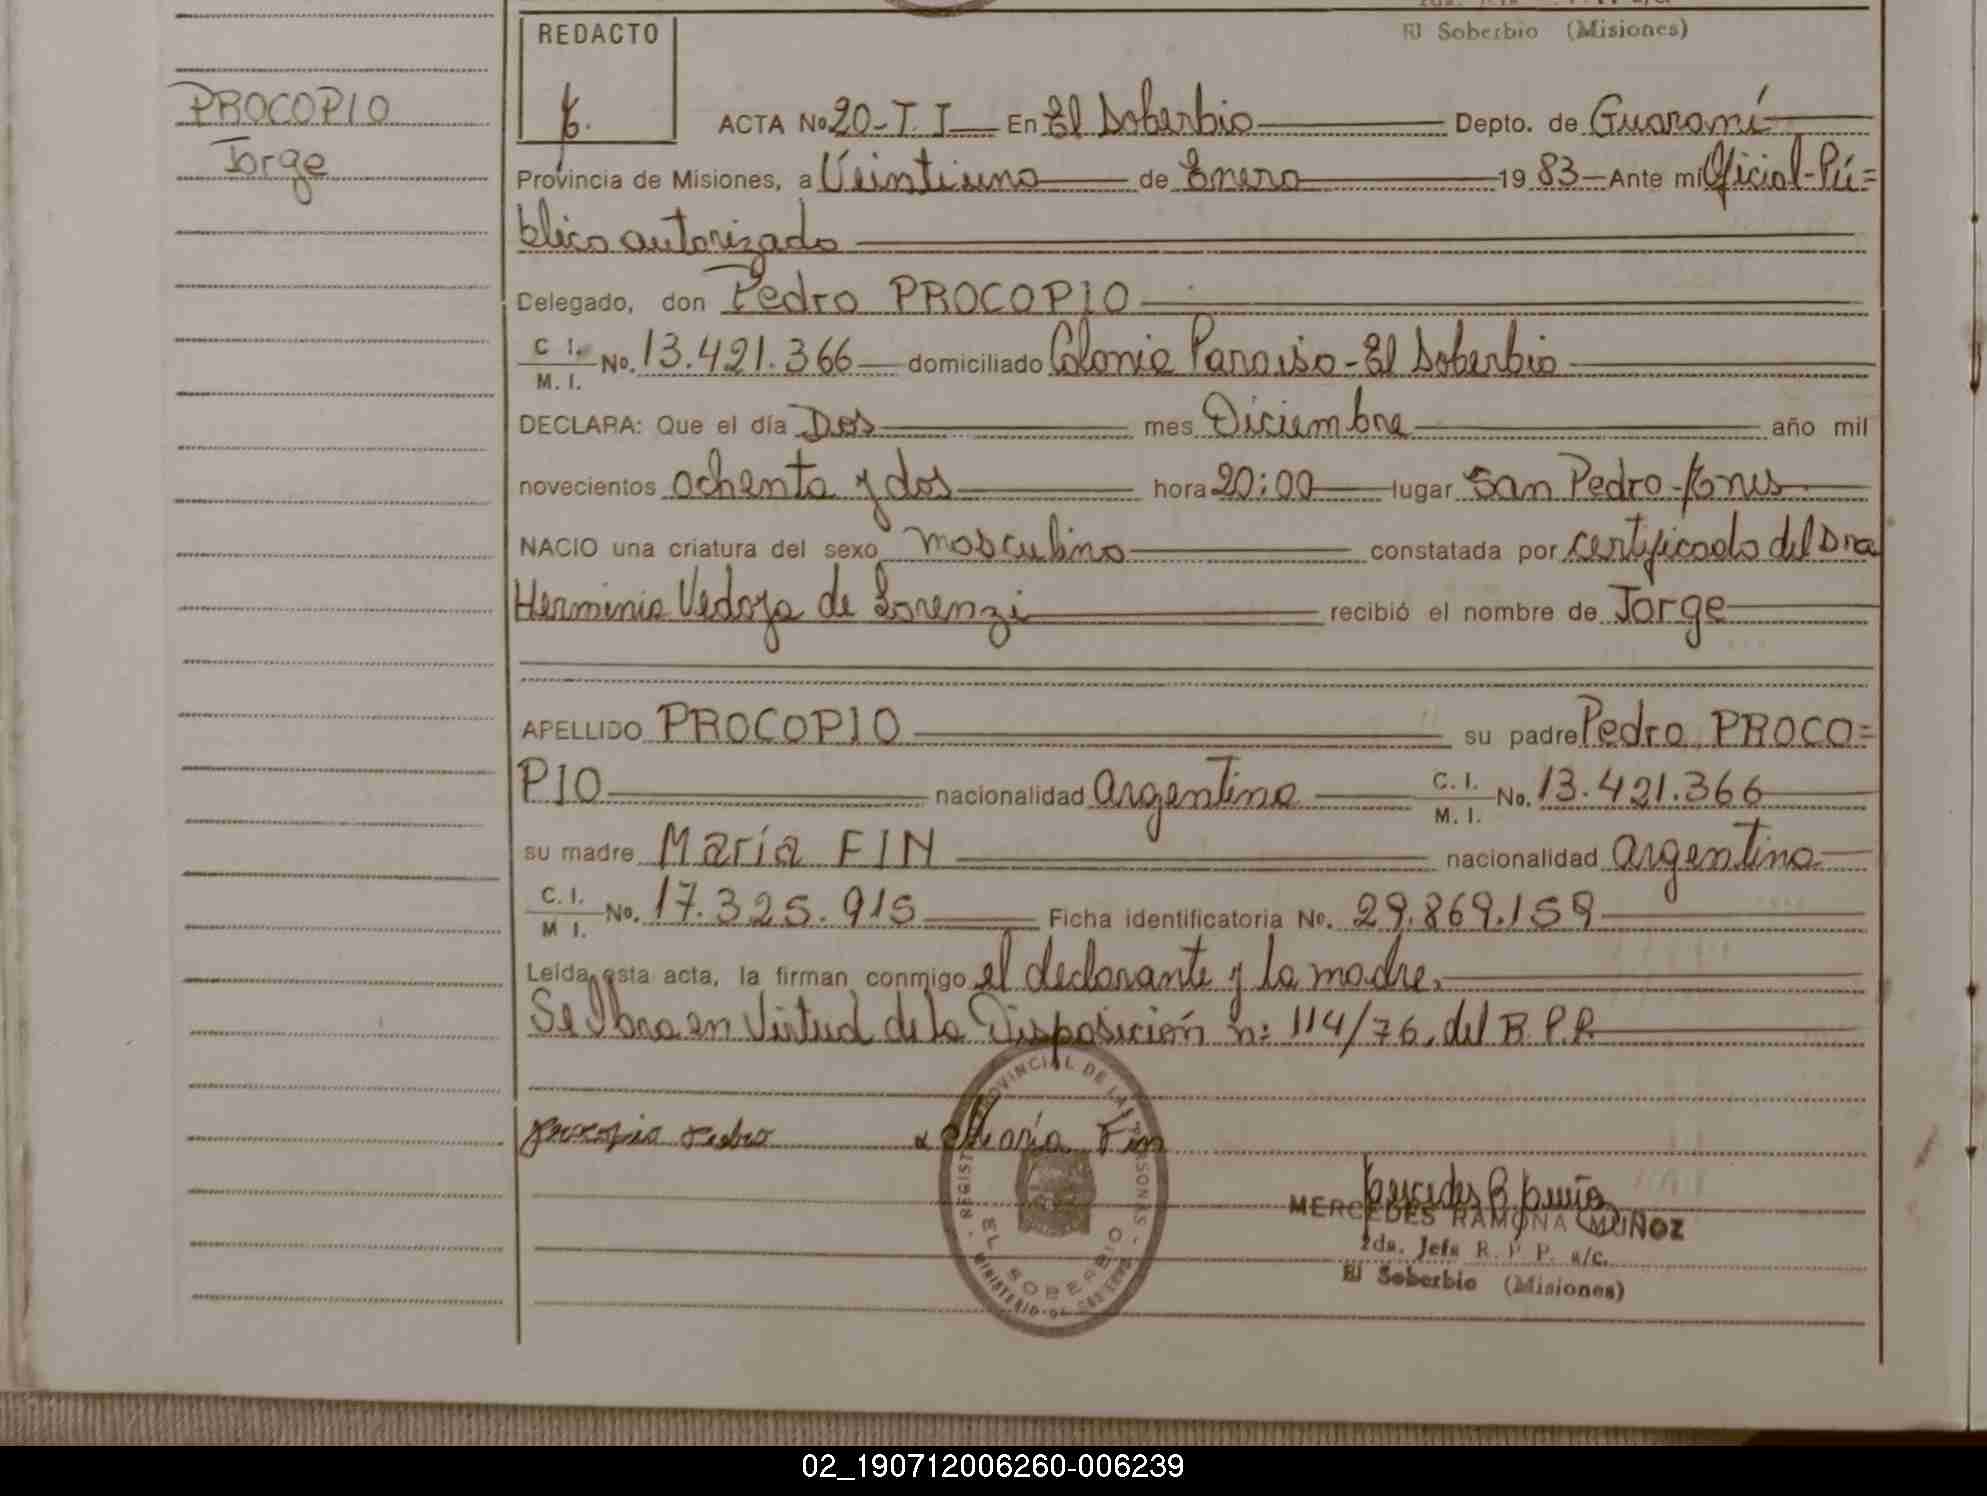 El Soberbio (Misiones)
REDACTO
PROCOPIO
Jorge
ACTA No 20-T.I En El Soberbio Depto. de Guaraní
Provincia de Misiones, a Veintiuno de Enero 19 83 Ante mi Oficial-Pú=
blico autorizado
Delegado, don Pedro PROCOPIO
C I. M. I. No. 13.421.366 domiciliado Colonia Paraiso-El Soberbio
DECLARA: Que el día Dos mes Diciembre año mil
novecientos ochenta y dos hora 20:00 lugar San Pedro-Mnes
NACIO una criatura del sexo masculino constatada por certificado del Dra
Herminia Vedoya de Lorenzi recibió el nombre de Jorge
APELLIDO PROCOPIO su padre Pedro PROCO=
PIO nacionalidad argentina C. I. M. I. No. 13.421.366
su madre María FIN nacionalidad argentina
C. I. M I. No. 17.325.915 Ficha identificatoria No. 29.869.159
Leída esta acta, la firman conmigo el declarante y la madre.
Se labra en Virtud de la Disposición n: 114/76. del R.P.P.
procopio Pedro María Fin
REGISTRO PROVINCIAL DE LAS PERSONAS - MINISTERIO DE GOBIERNO -
EL SOBERBIO
MERCEDES RAMONA MUÑOZ
2da. Jefa R. P P. a/c.
El Soberbio (Misiones)
02_190712006260-006239